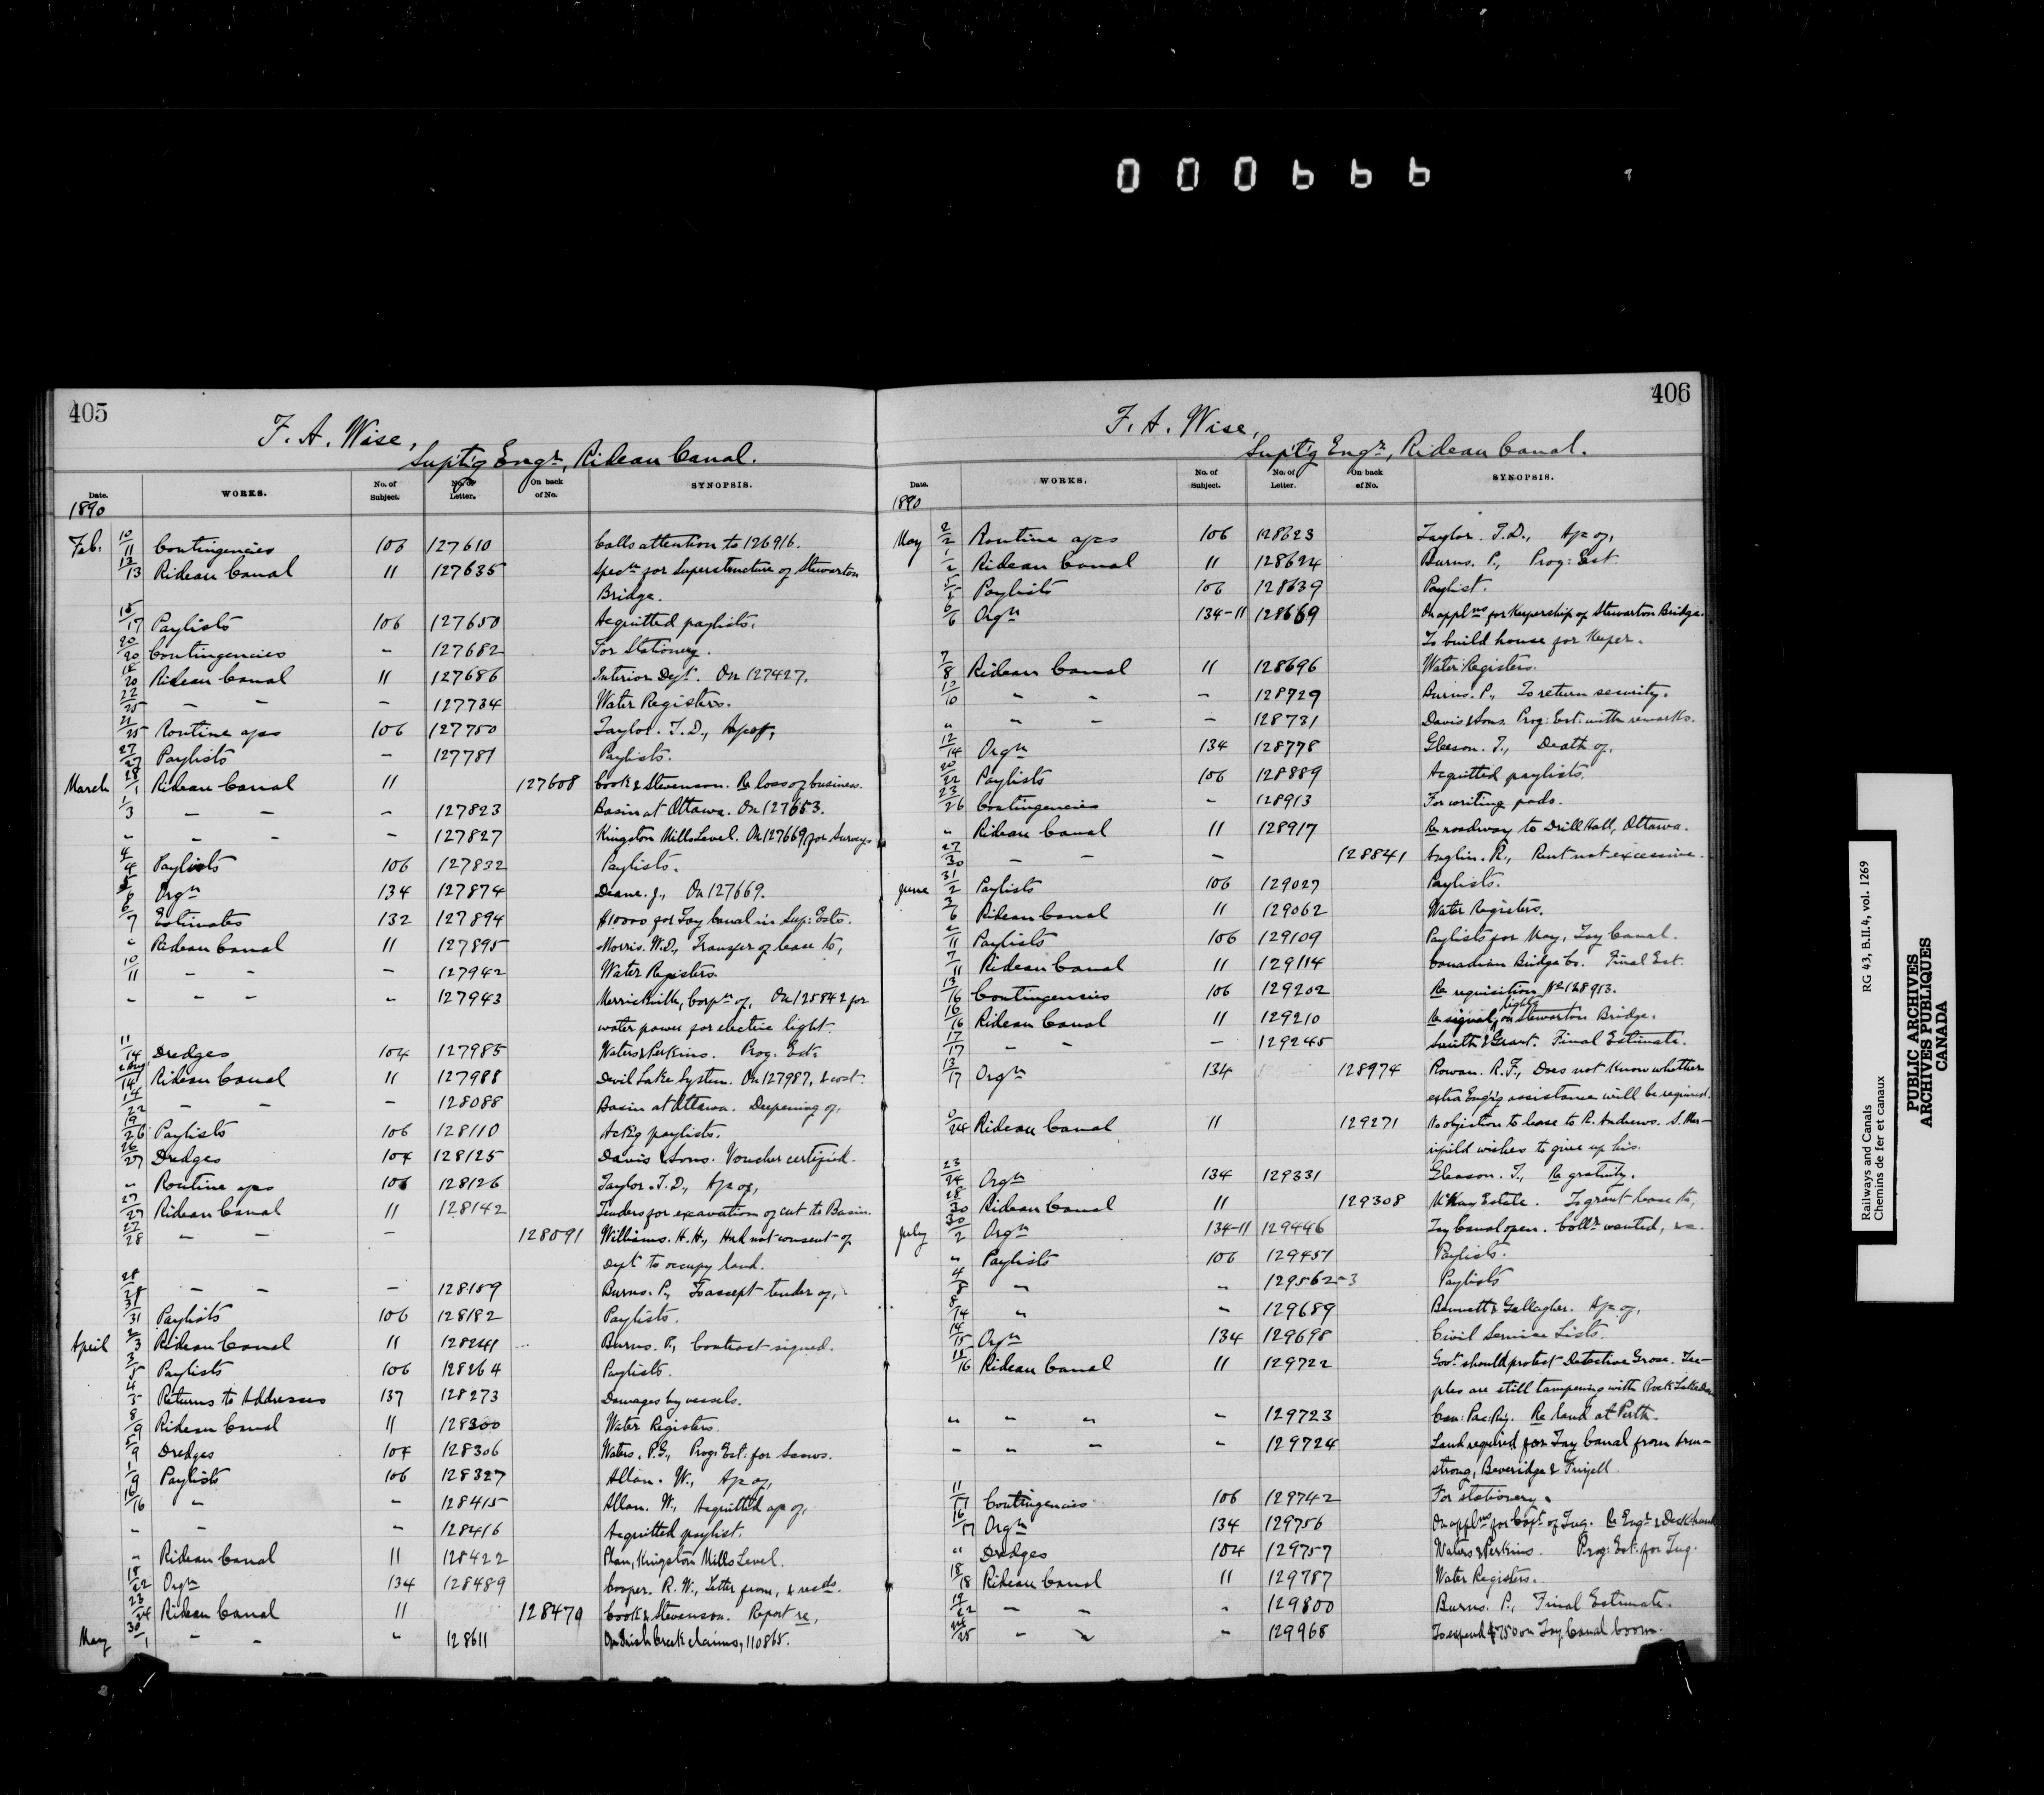 000666
405
F. A. Wise,
Suptg Engr, Rideau Canal.
Date. WORKS. No. of Subject. No. of Letter. On back of No. SYNOPSIS.
1890
Feb. 10/11 Contingencies 106 127610 Calls attention to 126916.
12/13 Rideau Canal 11 127635 Specn for Superstructure of Stewarton
Bridge.
15/17 Paylists 106 127650 Acquitted paylists.
20/20 Contingencies - 127682 For Stationery.
18/20 Rideau Canal 11 127686 Interior Dept. On 127427.
22/25 - - - 127734 Water Registers.
21/25 Routine aps 106 127750 Taylor. T.D., Ap of,
27/27 Paylists - 127781 Paylists.
March 28/1 Rideau Canal 11 127608 Cook & Stevenson. Re loss of business.
1/3 - - - 127823 Basin at Ottawa. On 127653.
" - - - 127827 Kingston Mills Level. On 127669, for Surveys
4/4 Paylists 106 127832 Paylists.
5/6 Orgn 134 127874 Deane. J., On 127669.
6/7 Estimates 132 127894 $10000 for Tay Canal in Sup: Ests.
" Rideau Canal 11 127895 Morris. W.D., Transfer of lease to,
10/11 - - - 127942 Water Registers.
" - - " 127943 Merrickville, Corpn of, On 125842 for
water power for electric light.
11/14 Dredges 104 127985 Waters & Perkins. Prog. Est.
2 Aug/14 Rideau Canal 11 127988 Devil Lake System. On 127987, & cost.
14/22 - - - 128088 Basin at Ottawa. Deepening of,
19/26 Paylists 106 128110 Ack'g paylists.
26/27 Dredges 104 128125 Davis & Sons. Voucher certified.
" Routine aps 106 128126 Taylor. T.D., Ap of,
27/27 Rideau Canal 11 128142 Tenders for excavation of cut to Basin.
27/28 - - - 128091 Williams. H.H., Had not consent of
Dept to occupy land.
28/28 - - - 128159 Burns. P., To accept tender of,
31/31 Paylists 106 128182 Paylists.
April 2/3 Rideau Canal 11 128241 Burns. P., Contract signed.
3/5 Paylists 106 128264 Paylists.
4/5 Returns to Addresses 137 128273 Damages by vessels.
8/9 Rideau Canal 11 128300 Water Registers.
5/9 Dredges 104 128306 Waters. P.G., Prog: Est: for Scows.
1/9 Paylists 106 128327 Allan. W., Ap of,
16/16 " - 128415 Allan. W., Acquitted ap of,
" - " 128416 Acquitted paylist.
" Rideau Canal 11 128422 Plan, Kingston Mills Level.
18/22 Orgn 134 128489 Cooper. R.W., Letter from, & recds.
23/24 Rideau Canal 11 128479 Cook & Stevenson. Report re,
May 30/1 - - " 128611 On Irish Creek claims, 110865.
406
F. A. Wise,
Suptg Engr, Rideau Canal.
Date. WORKS. No. of Subject. No. of Letter. On back of No. SYNOPSIS.
1890
May 2/2 Routine aps 106 128623 Taylor. T.D., Ap of,
1/2 Rideau Canal 11 128624 Burns. P., Prog: Est.
5/5 Paylists 106 128639 Paylist.
6/6 Orgn 134-11 128669 On applns for Keepership of Stewarton Bridge.
To build house for Keeper.
7/8 Rideau Canal 11 128696 Water Registers.
10/10 " " - 128729 Burns. P., To return security.
" " - - 128731 Davis & Sons. Prog: Est: with remarks.
12/14 Orgn 134 128778 Gleeson. T., Death of,
20/22 Paylists 106 128889 Acquitted paylists.
23/26 Contingencies - 128913 For writing pads.
" Rideau Canal 11 128917 Re roadway to Drill Hall, Ottawa.
27/30 - - - 128841 Anglin. R., Rent not excessive.
June 31/2 Paylists 106 129027 Paylists.
3/6 Rideau Canal 11 129062 Water Registers.
2/11 Paylists 106 129109 Paylists for May, Tay Canal.
7/11 Rideau Canal 11 129114 Canadian Bridge Co. Final Est.
13/16 Contingencies 106 129202 Re requisition No 128913.
16/16 Rideau Canal 11 129210 Re signal lights on Stewarton Bridge.
17/17 - - - 129245 Smith & Grant. Final Estimate.
13/17 Orgn 134 128974 Rowan. R.F., Does not know whether
extra Engrg assistance will be required.
/24 Rideau Canal 11 129271 No objection to lease to R. Andrews. S. Mer-
rifield wishes to give up his.
23/24 Orgn 134 129331 Gleeson. T., Re gratuity.
28/30 Rideau Canal 11 129308 McKay Estate. To grant lease to,
July 30/2 Orgn 134-11 129446 Tay Canal open. Collr wanted, &c.
" Paylists 106 129451 Paylists.
4/8 " " 129562-3 Paylists
8/14 " " 129689 Bennett & Gallagher. Ap of,
14/15 Orgn 134 129698 Civil Service Lists.
15/16 Rideau Canal 11 129722 Govt should protest Detective Grose.
ples are still tampering with Rock Lake Dam
" " " - 129723 Can: Pac: Ry. Re land at Perth.
- " - " 129724 Land required for Tay Canal from Arm-
strong, Beveridge &
11/17 Contingencies 106 129742 For stationery.
16/17 Orgn 134 129756 On applns for Capt of Tug. Re Engr & Deckhand
" Dredges 104 129757 Waters & Perkins. Prog: Est: for Tug.
18/18 Rideau Canal 11 129787 Water Registers.
19/22 - - " 129800 Burns. P., Final Estimate.
24/25 - " - 129968 To expend $750 on Tay Canal boom.
Railways and Canals RG 43, B.II.4, vol. 1269
Chemins de fer et canaux
PUBLIC ARCHIVES
ARCHIVES PUBLIQUES
CANADA